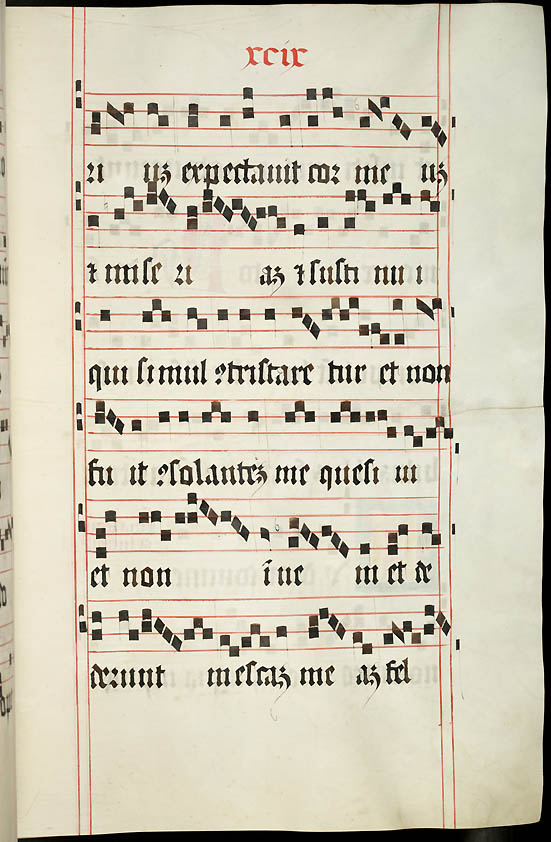 xcix
ri uꝫ expectauit cor me uꝫ
⁊ mise ri aꝫ ⁊ susti nui i
qui simul ꝯtristare tur et non
fu it ꝯsolanteꝫ me quesi ui
et non īue ni et de
derunt in escaꝫ me aꝫ fel